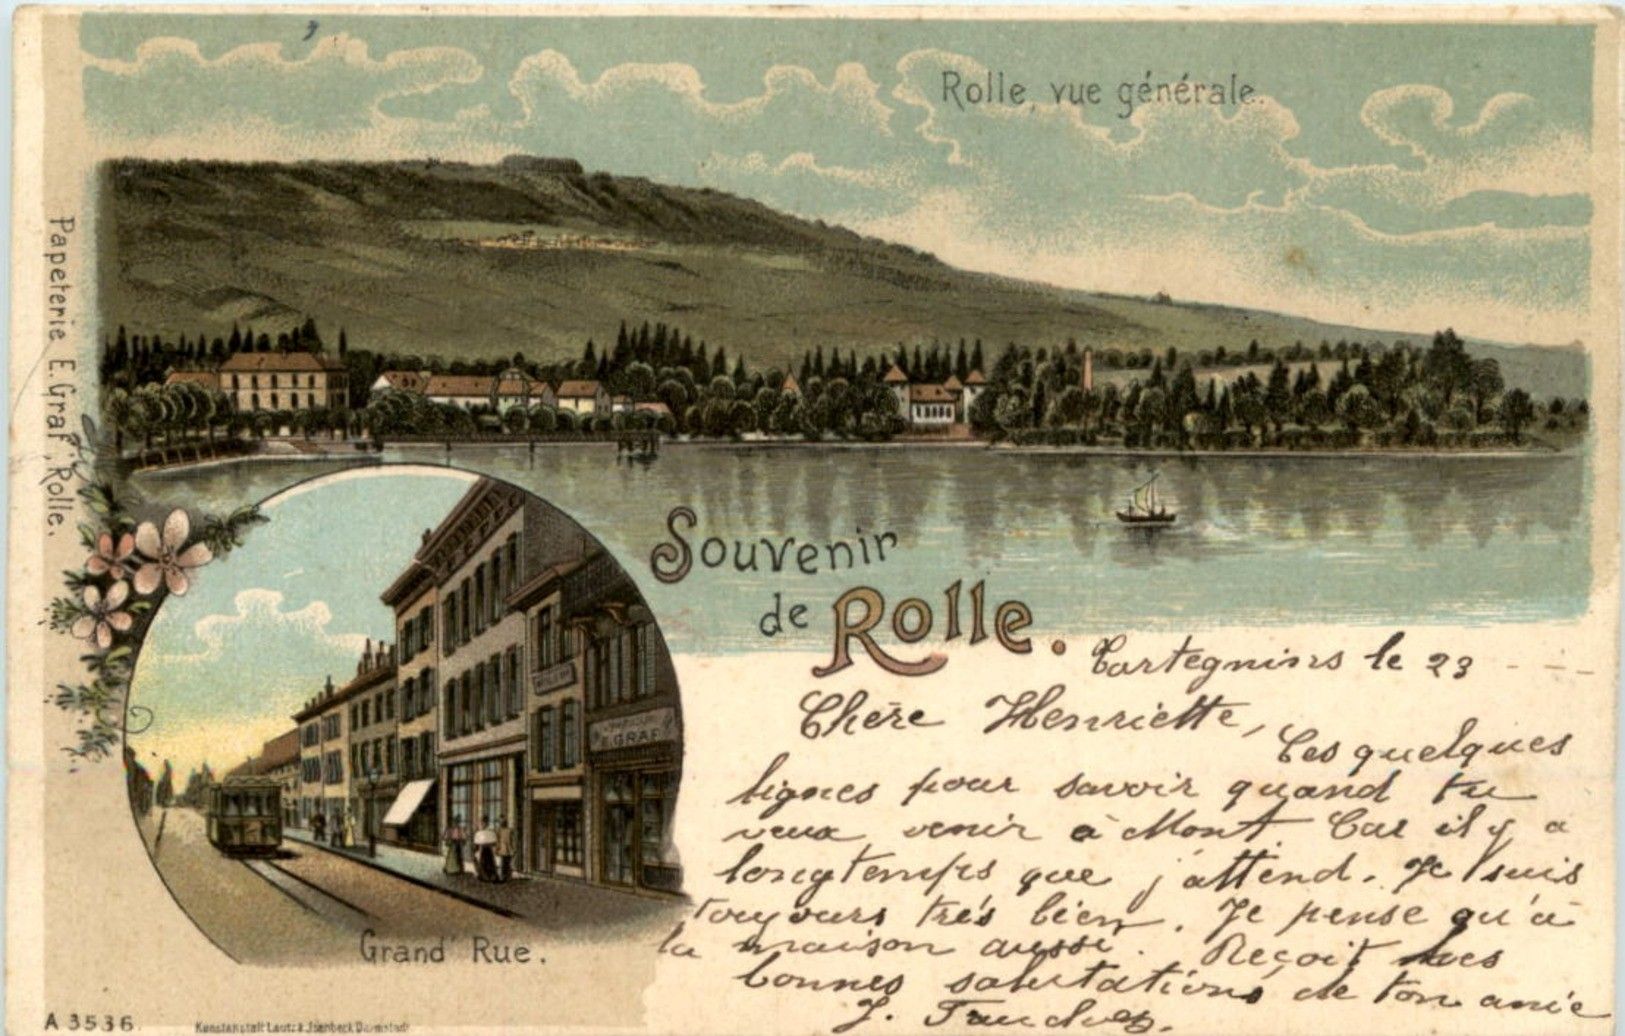 Rolle, vue générale.
Papeterie E. Graf, Rolle.
Souvenir
de Rolle.
E. GRAF
Grand' Rue.
Cartegnins le 23
Chère Henriette,
Ces quelques
lignes pour savoir quand tu
veux venir à Mont. Car il y a
longtemps que j'attend. Je suis
toujours très bien. Je pense qu'à
la maison aussi. Reçoit les
bonnes salutations de ton amie
J.
A 3536
Kunstanstalt Lautz & Isenbeck Darmstadt